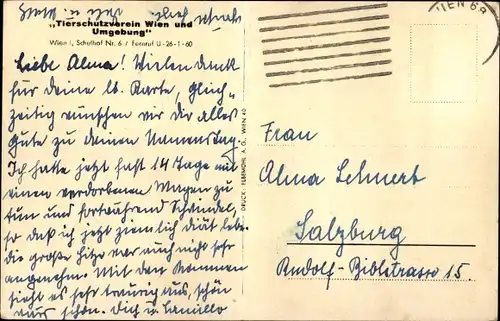 „Tierschutzverein Wien und
Umgebung"
Wien I, Schulhof Nr. 6 / Fernruf U-26-1-60
Liebe Alma! Vielen dank
für deine lb. Karte, gleich-
zeitig wünschen wir dir alles
Gute zu deinem Namenstag.
Ich hatte jetzt fast 14 Tage mit
einen verdorbenen Magen zu
tun und fortwährend Schwindel,
so daß ich jetzt ziemlich diät lebe.
die große Hitze war auch nicht sehr
angenehm. Mit den Kommen
sieht es sehr traurig aus, schön
wärs schon. Dich u. Camillo
DRUCK: ELBEMÜHL A. G., WIEN 40
WIEN 69
Frau
Alma Lehnert
Salzburg
Rudolf-Biblstrasse 15.